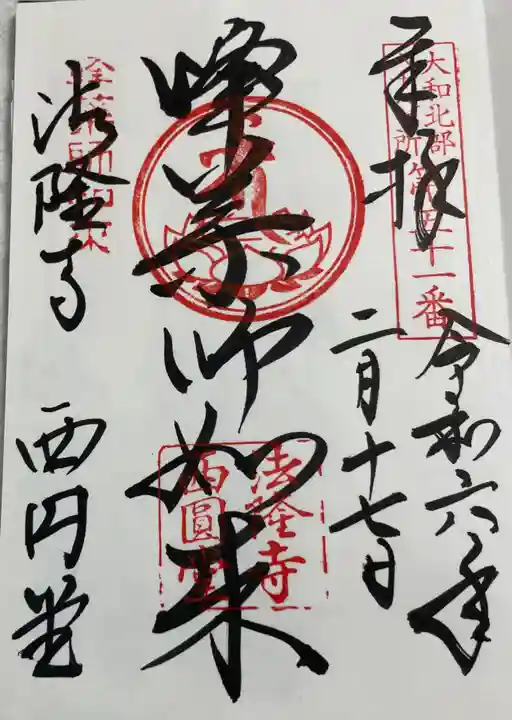 奉拝
大和北部
所第五十一番
令和六年
二月十七日
峰薬師如来
法隆寺
西圓堂
峰薬師如来
法隆寺 西円堂